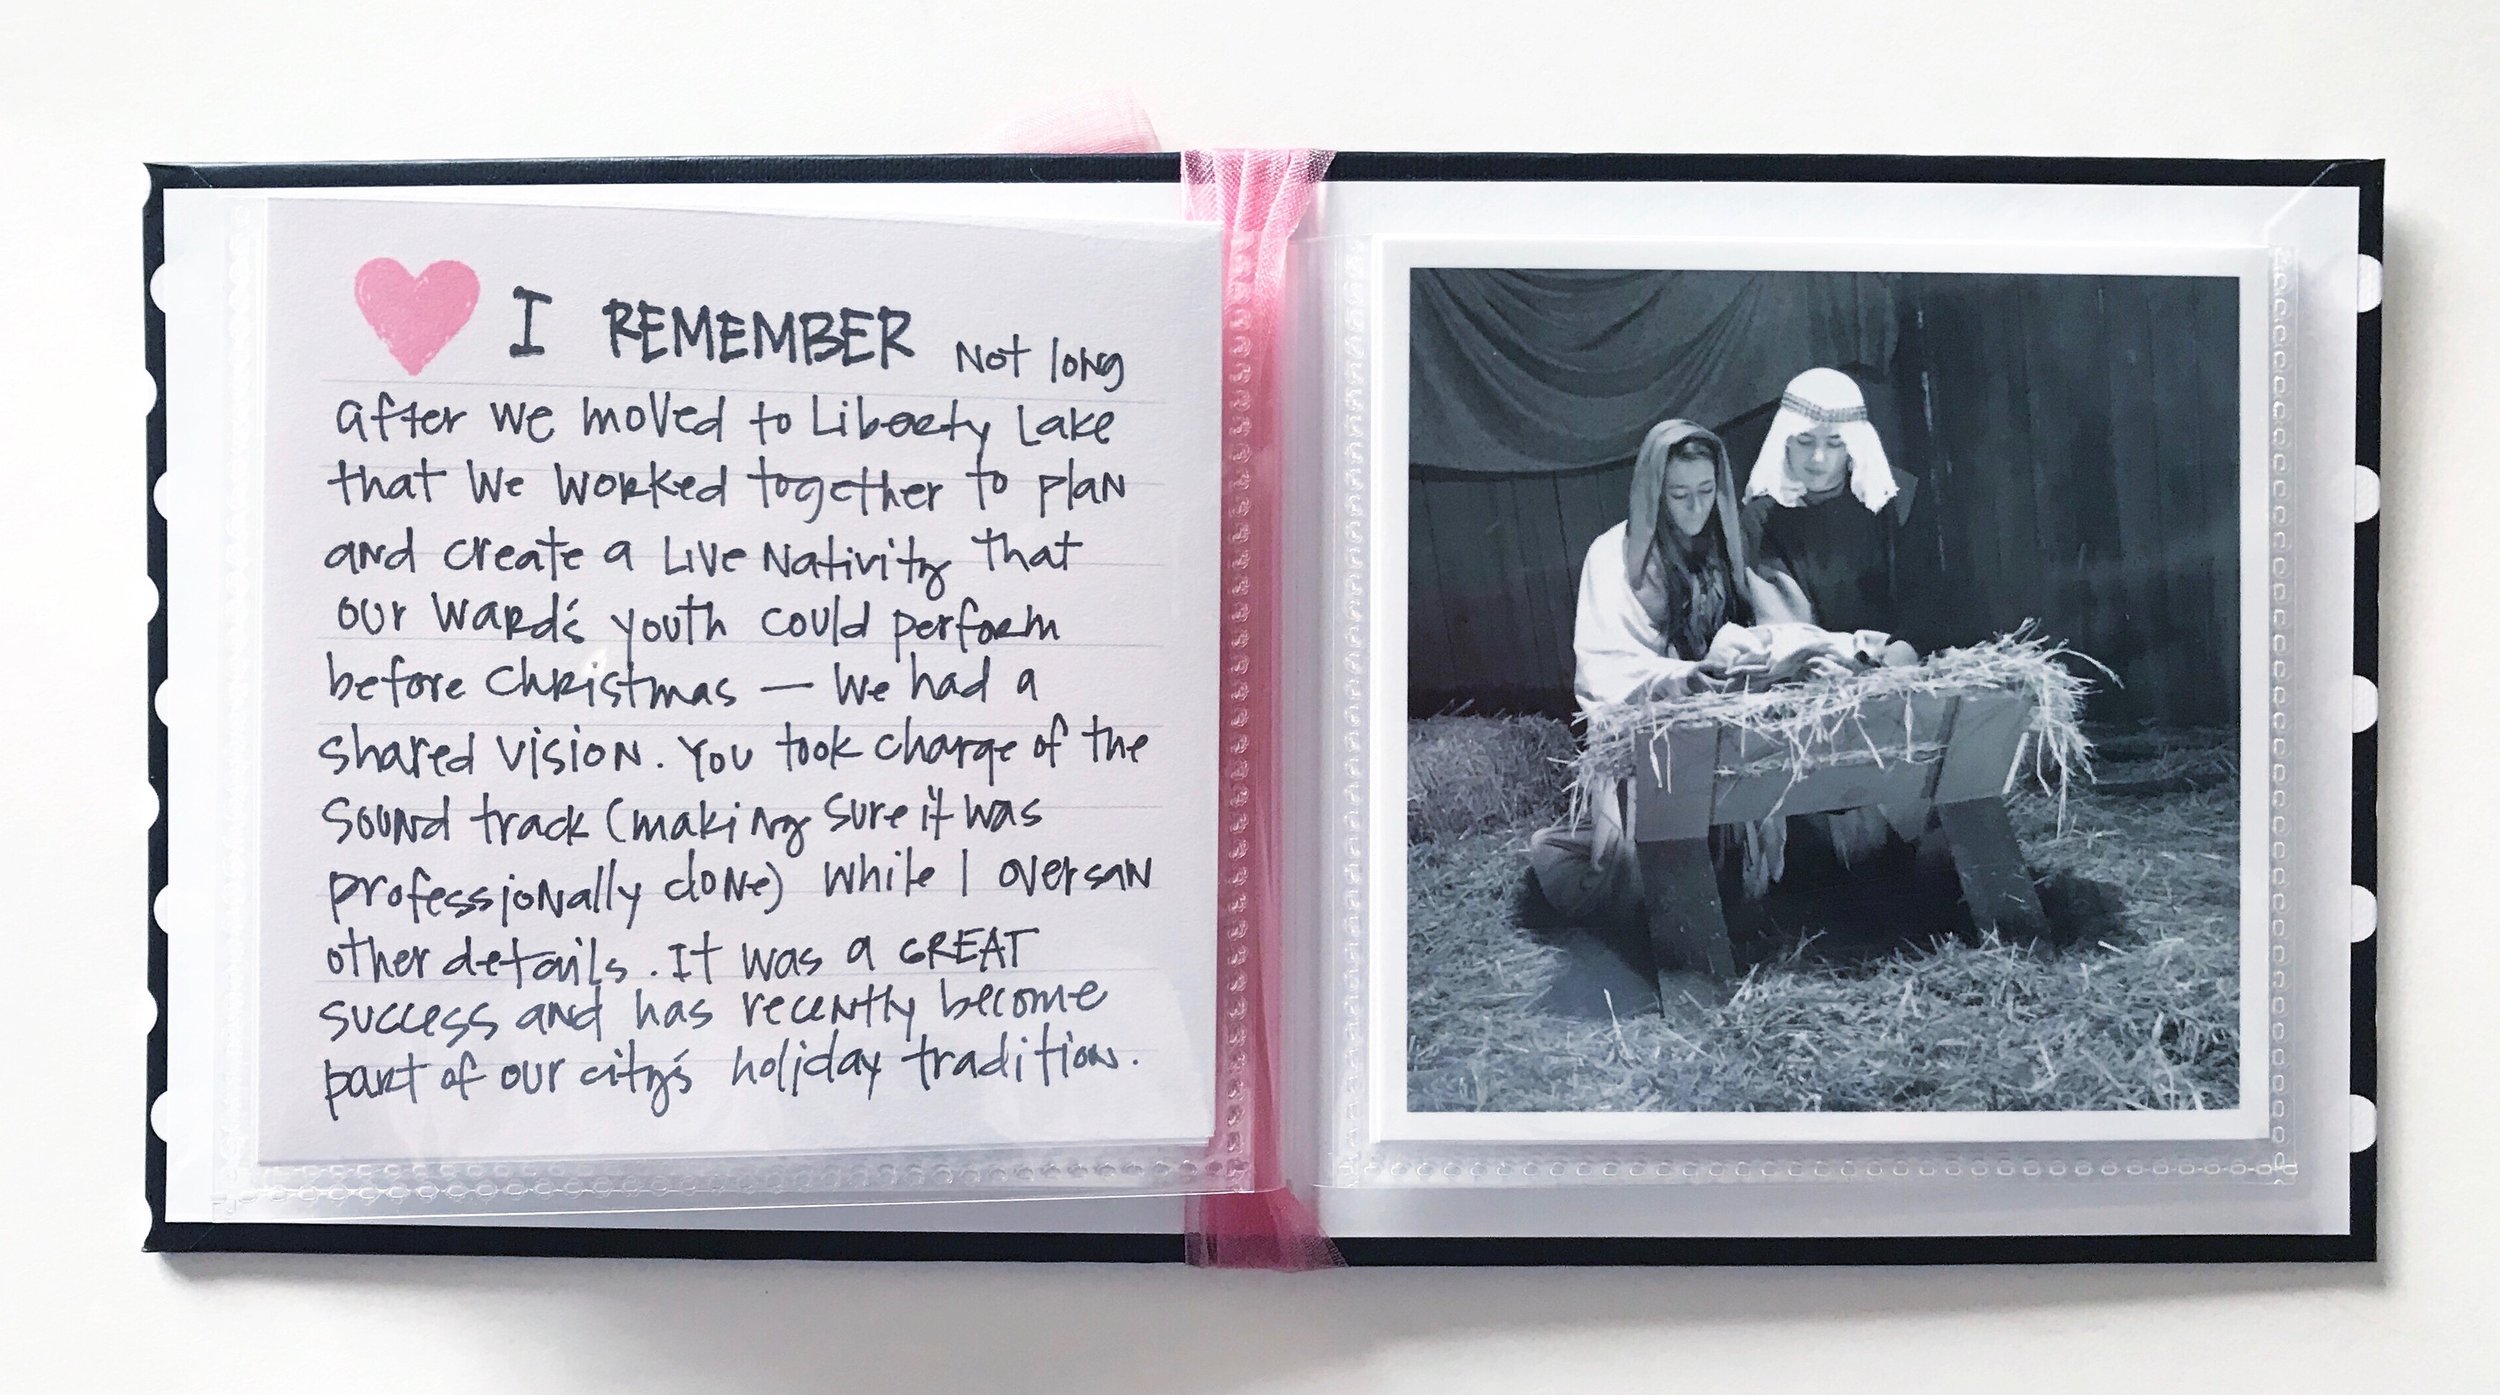 I REMEMBER Not long
after we moved to Liberty Lake
that we worked together to plan
and create a Live Nativity that
our ward's youth could perform
before Christmas — We had a
shared vision. You took charge of the
sound track (making sure it was
professionally done) while I oversaw
other details. It was a GREAT
success and has recently become
part of our city's holiday tradition.